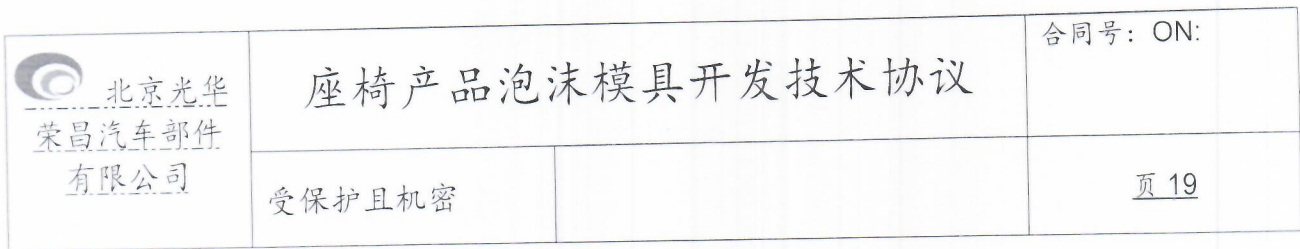 北京光华
荣昌汽车部件
有限公司
座椅产品泡沫模具开发技术协议
合同号：ON:
受保护且机密
页 19